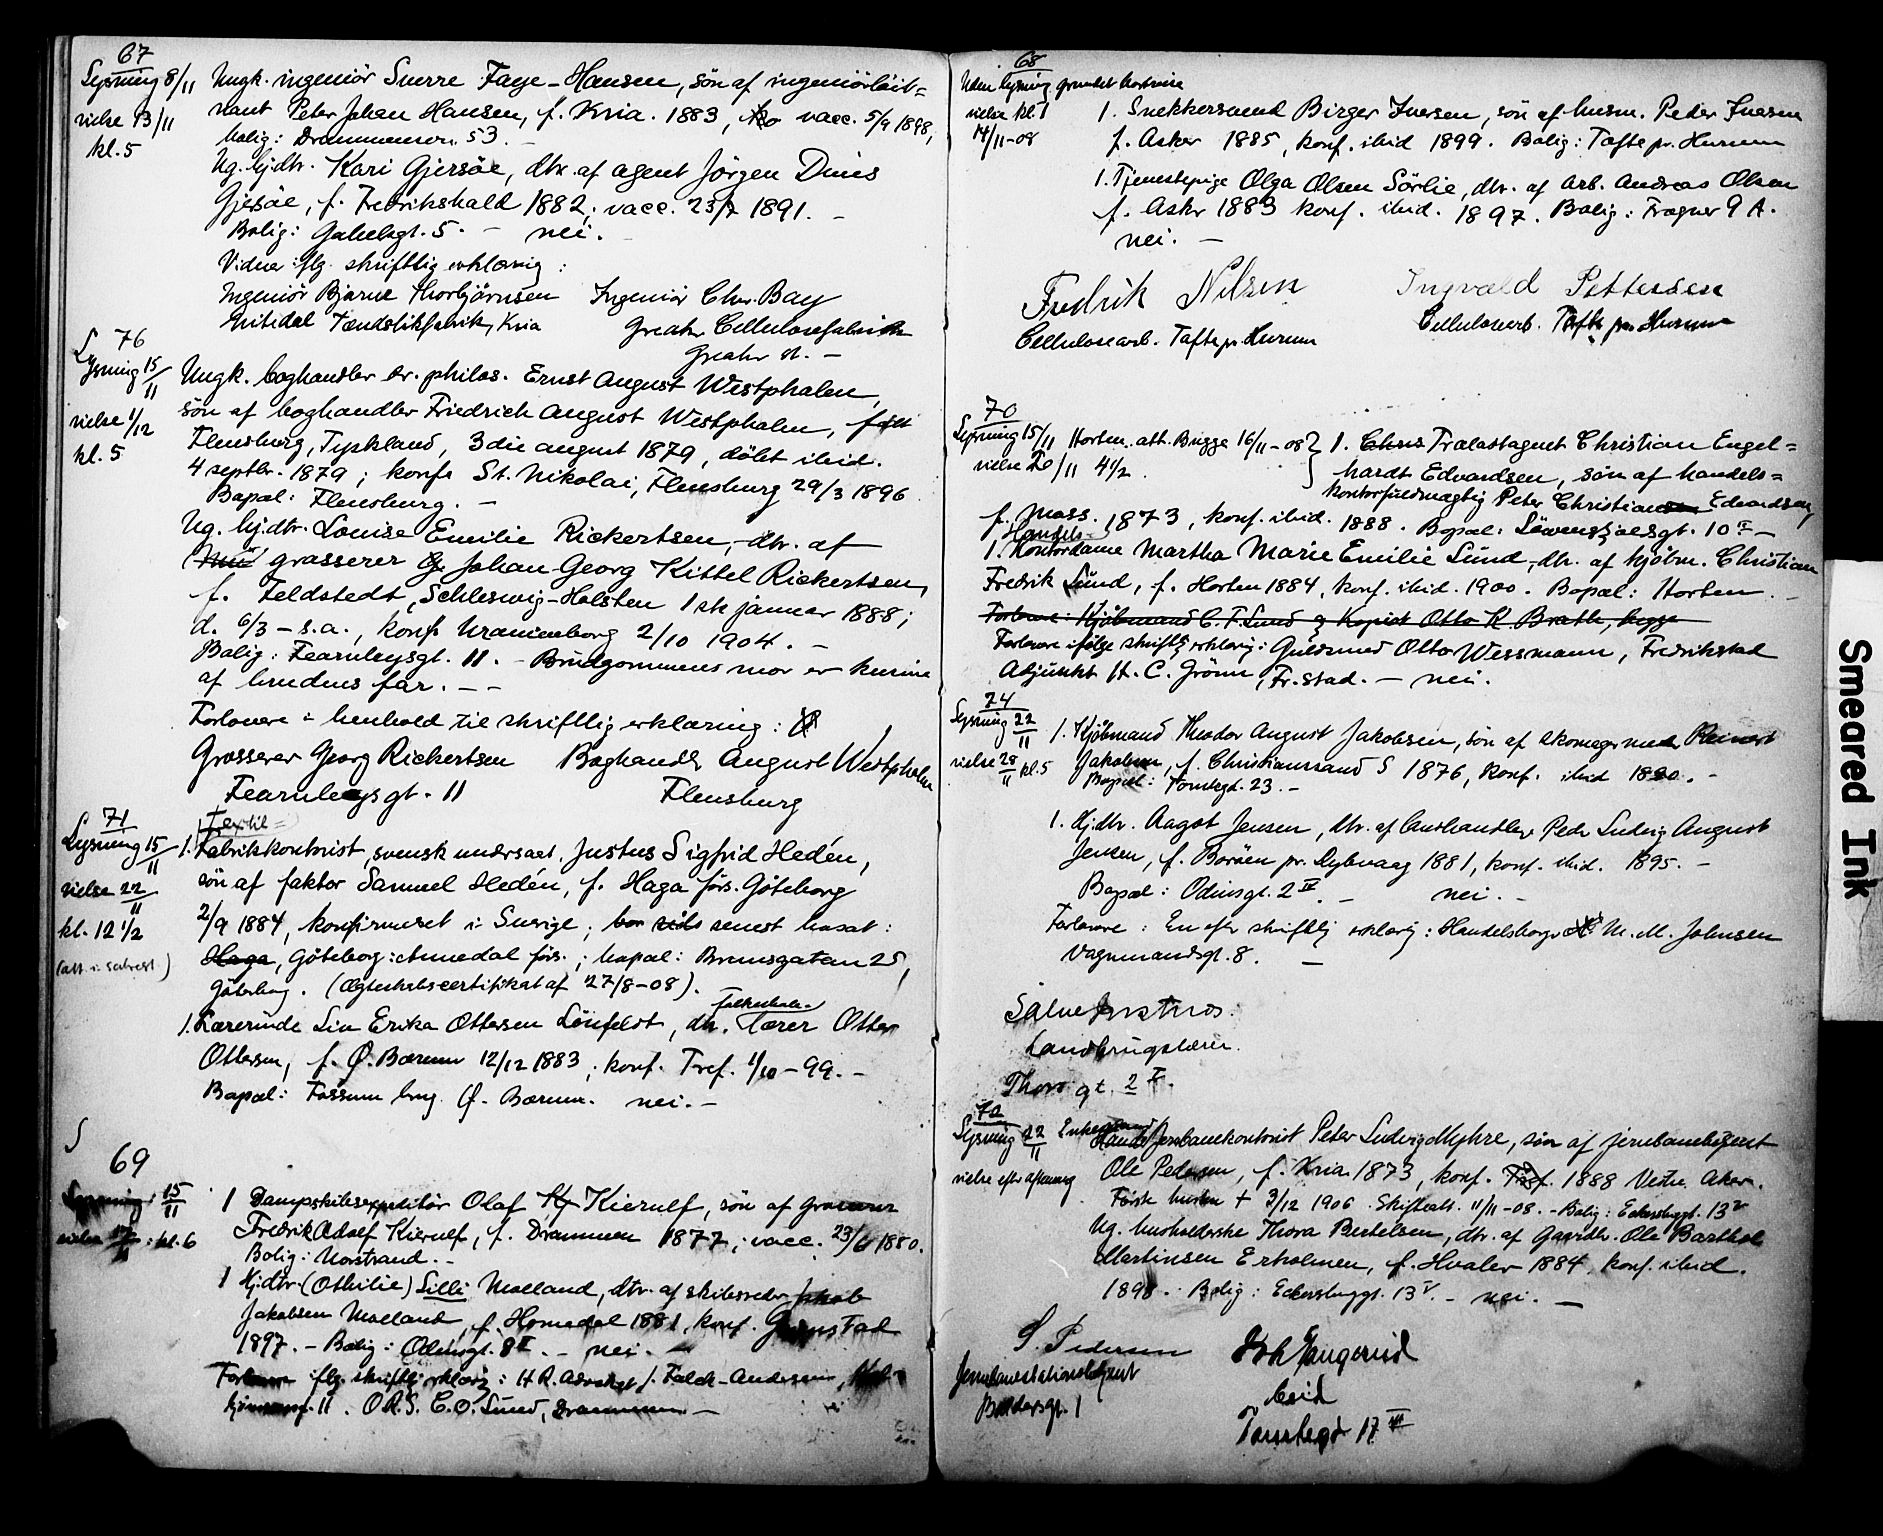 67
Lysning 8/11
vielse 13/11
kl. 5
Ungk. ingeniör Sverre Faye-Hansen, sön af ingeniörlöit=
nant Peter Johan Hansen, f. Kria. 1883, vacc. 5/9 1898,
bolig: Drammensv. 53. -
Ug. hjdtr. Kari Gjersöe, dtr. af agent Jörgen Dinis
Gjersöe, f. Fredrikshald 1882; vacc. 23/7 1891. -
Bolig: Gabelsgt. 5. - nei.
Vidne iflg. skriftlig erklæring:
Ingeniör Bjarne Thorbjörnsen Ingeniör Chr. Bay
Nitedal Tændstikfabrik, Kria Greaker Cellulosefabrik
Greaker st. -
76
Lysning 15/11
vielse 1/12
kl. 5
Ungk. boghandler dr. philos. Ernst August Westphalen,
sön af boghandler Friedrich August Westphalen, födt
Flensburg, Tyskland, 3die august 1879, döbt ibid.
4 septbr. 1879; konf. St. Nikolai, Flensburg 29/3 1896
Bopæl: Flensburg. -
Ug. hjdtr. Louise Emilie Rickertsen, dtr. af
grosserer Johan Georg Kittel Rickertsen,
f. Feldstedt, Schleswig-Holsten 1ste januar 1888;
d. 6/3 - s.a., konf. Uranienborg 2/10 1904. -
Bolig: Fearnleysgt. 11. - Brudgommens mor er kusine
af brudens far. - -
Forlovere i henhold til skriftlig erklæring:
Grosserer Georg Rickertsen Boghandler August Westphalen
Fearnleysgt. 11 Flensburg
71
Lysning 15/11
vielse 22/11
kl. 12 1/2
(att. i sakrist.)
Textil=
1. Fabrikkontorist, svensk undersaat, Justus Sigfrid Hedén,
sön af faktor Samuel Hedén, f. Haga förs. Göteborg
2/9 1884, konfirmeret i Sverige; senest bosat:
Haga, Göteborg: Annedal förs.; bopæl: Brunsgatan 25,
Göteborg. (Ægteskabscertifikat af 27/8-08). -
folkeskole
1. Lærerinde Liv Erika Ottersen Lönfeldt, dtr. lærer Otter
Ottersen, f. Ö. Bærum 12/12 1883; konf. Tref. 1/10-99. -
Bopæl: Fossum brug Ö. Bærum. nei. -
69
Lysning 15/11
kl. 6
1 Dampskibsexpeditör Olaf Kierulf, sön af grosserer
Fredrik Adolf Kierulf, f. Drammen 1877; vacc. 23/6 1880.
Bolig: Norstrand. -
1 Hjdtr. (Othilie) Lilli Molland, dtr. af skibsreder Jakob
Jakobsen Molland, f. Homedal 1881, konf. Grimstad
1897. - Bolig: Odinsgt. 8 II. - nei. -
Forlovere iflg. skriftlig erklæring: H.R. Advokat J. Falck-Andersen,
11. O.R.S. C.O. Lund, Drammen -
68
Uden lysning grundet hastværk
vielse kl. 1
14/11-08
1. Snekkersvend Birger Iversen, sön af husm. Peder Iversen
f. Asker 1885, konf. ibid 1899. Bolig: Tofte pr. Hurum
1. Tjenestepige Olga Olsen Sörlie, dtr. af Arb. Andreas Olsen
f. Asker 1883 konf. ibid. 1897. Bolig: Frogner 9 A.
nei. -
Fredrik Nilsen Ingvald Pettersen
Cellulosearb. Tofte pr. Hurum Cellulosearb. Tofte pr. Hurum
70
Lysning 15/11 Horten. att. Brygge 16/11-08
vielse 20/11 4 1/2
1. Chris Trælastagent Christian Engel=
hardt Edvardsen, sön af handels=
kontorfuldmægtig Peter Christian Edvardsen,
f. Moss. 1873, konf. ibid. 1888. Bopæl: Lövenskjoldsgt. 10 -
Handels-
1. Kontordame Martha Marie Emilie Lund, dtr. af kjöbm. Christian
Fredrik Lund, f. Horten 1884, konf. ibid. 1900. Bopæl: Horten. -
Forlovere: Kjöbmand C. F. Lund og Kopist Otto K. Brath, begge
Forlovere ifölge skriftlig erklæring: Guldsmed Otto Wessmann, Fredrikstad
Adjunkt H. C. Grönn, Fr.stad. - nei.
74
Lysning 22/11
vielse 28/11 kl. 5
1. Kjöbmand Theodor August Jakobsen, sön af skomagermester Reinert
Jakobsen, f. Christianssand S 1876, konf. ibid 1890. -
Bopæl: Tomtegd. 23. -
1. Hjdtr. Aagot Jensen, dtr. af Landhandler Peder Ludvig August
Jensen, f. Boröen pr. Dybvaag 1881, konf. ibid. 1895. -
Bopæl: Odinsgt. 2 IV. - nei. -
Forlovere: En efter skriftlig erklæring: Handelsborger M. M. Johnsen
Vognmandsgt. 8. -
Salve Justnæs.
Landbrugslærer.
Thors gt. 2 V.
72
Lysning 22/11
vielse efter aftensang
Enkemand Jernbanekontorist Peter Ludvig Myhre, sön af jernbanebetjent
Ole Pedersen, f. Kria. 1873, konf. 1888 Vestre Aker.
Förste hustru † 3/12 1906. Skifteatt. 11/11-08. - Bolig: Eckersbergsgt. 13 V
Ug. husholderske Thora Bertelsen, dtr. af Gaardbr. Ole Barthol
Martinsen Erholmen, f. Hvaler 1884, konf. ibid.
1898. Bolig: Eckersbergsgt. 13 V. - nei. -
S. Pedersen
Jernbanestationsbetjent
Tomtegd 17 III
Smeared Ink